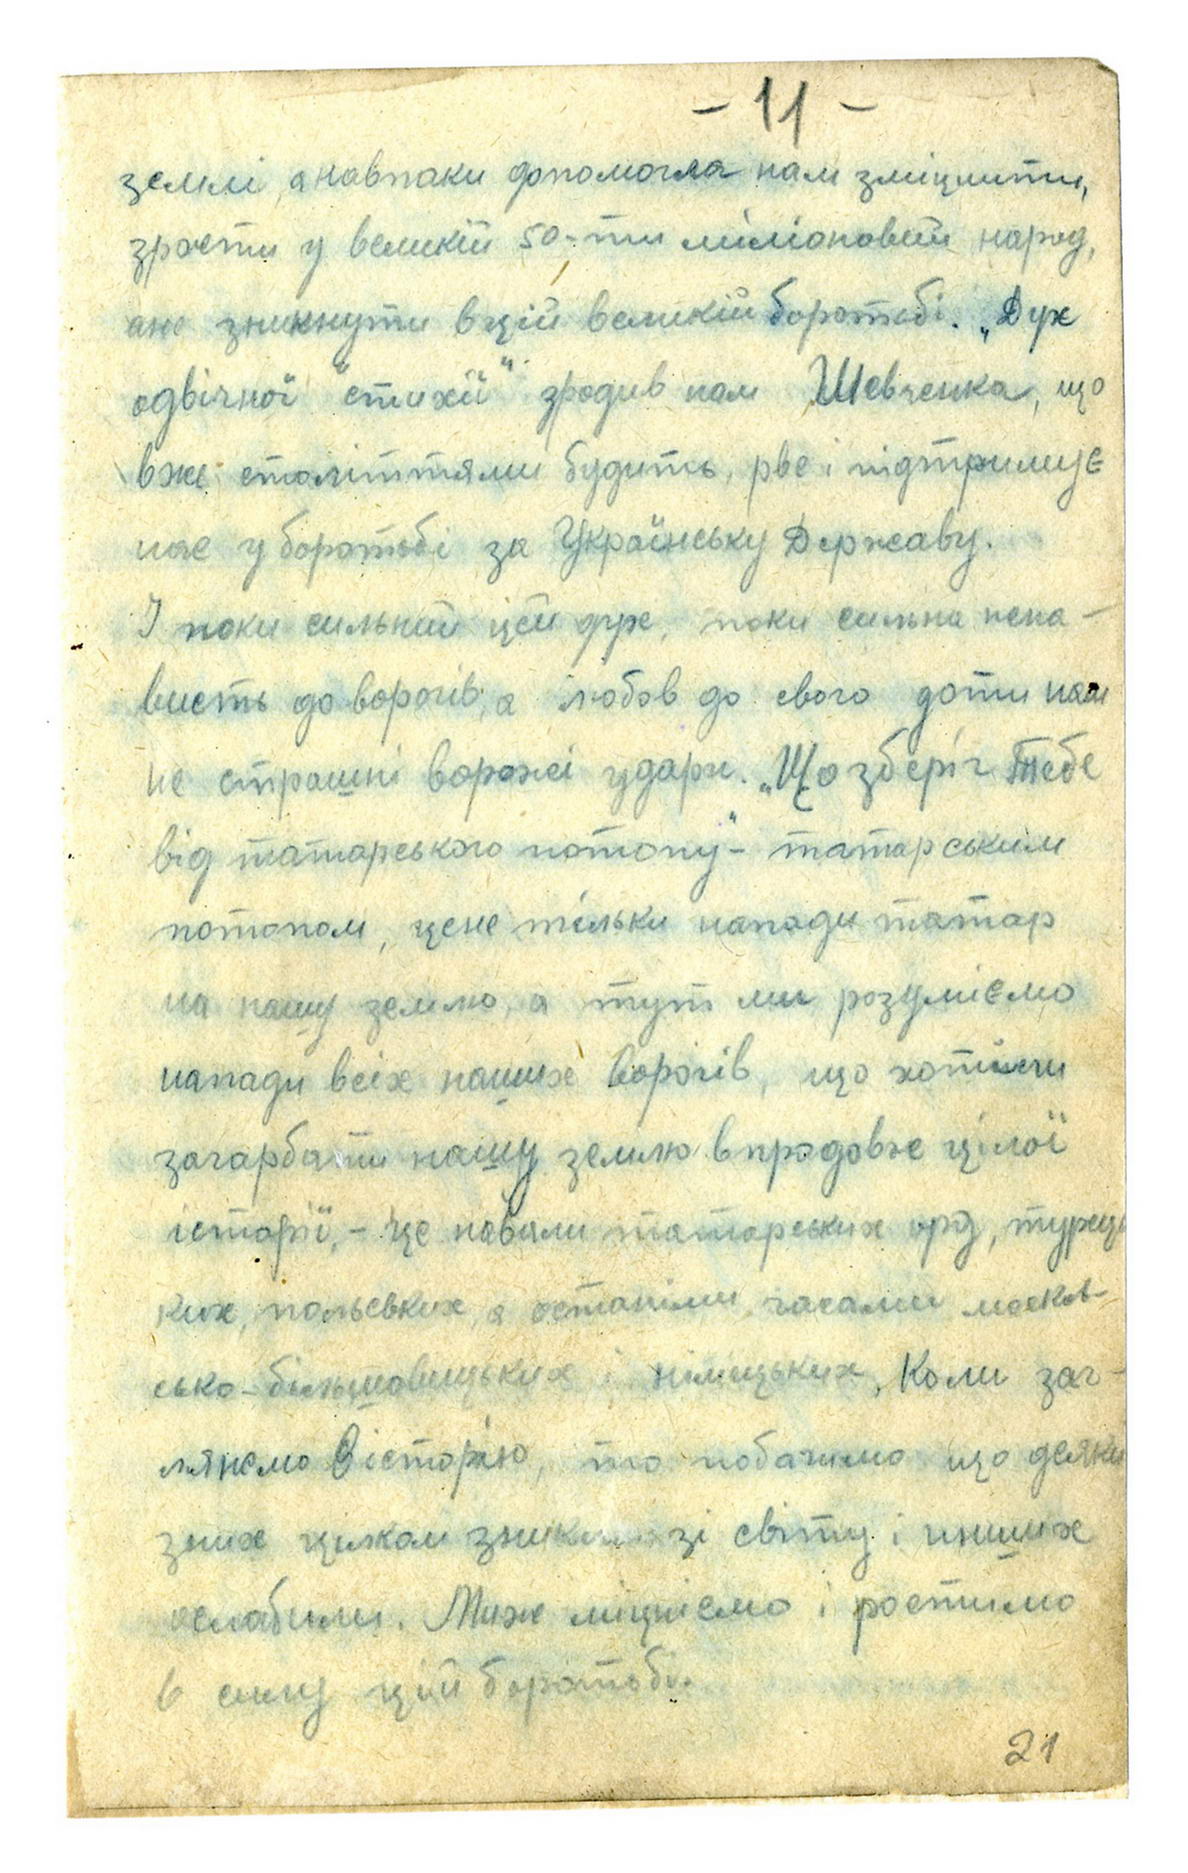 - 11 -
землі, а навпаки допомогла нам зміцнити,
зрости у великій 50-ти міліоновий народ,
ане зникнути вцій великій боротьбі. „Дух
одвічної стихії" зродив нам Шевченка, що
вже століттями будить, рве і підтримує
нас у боротьбі за Українську Державу.
І поки сильний цей дух, поки сильна нена-
висть до ворогів, а любов до свого доти нам
не страшні ворожі удари. „Що зберіг Тебе
від татарського потопу"- татарським
потопом, цене тільки напади татар
на нашу землю, а тут ми розуміємо
напади всіх наших ворогів, що хотіли
загарбати нашу землю впродовж цілої
історії, - це навали татарських орд, турець
ких, польсвких, а останіми часами москов-
сько-більшовицьких і німецьких, Коли заг-
лянемо вісторію, то побачимо що деякі
зних цілком зникли зі світу і инших
ослабили. Миж міцніємо і ростимо
в силу цій боротьбі.
21